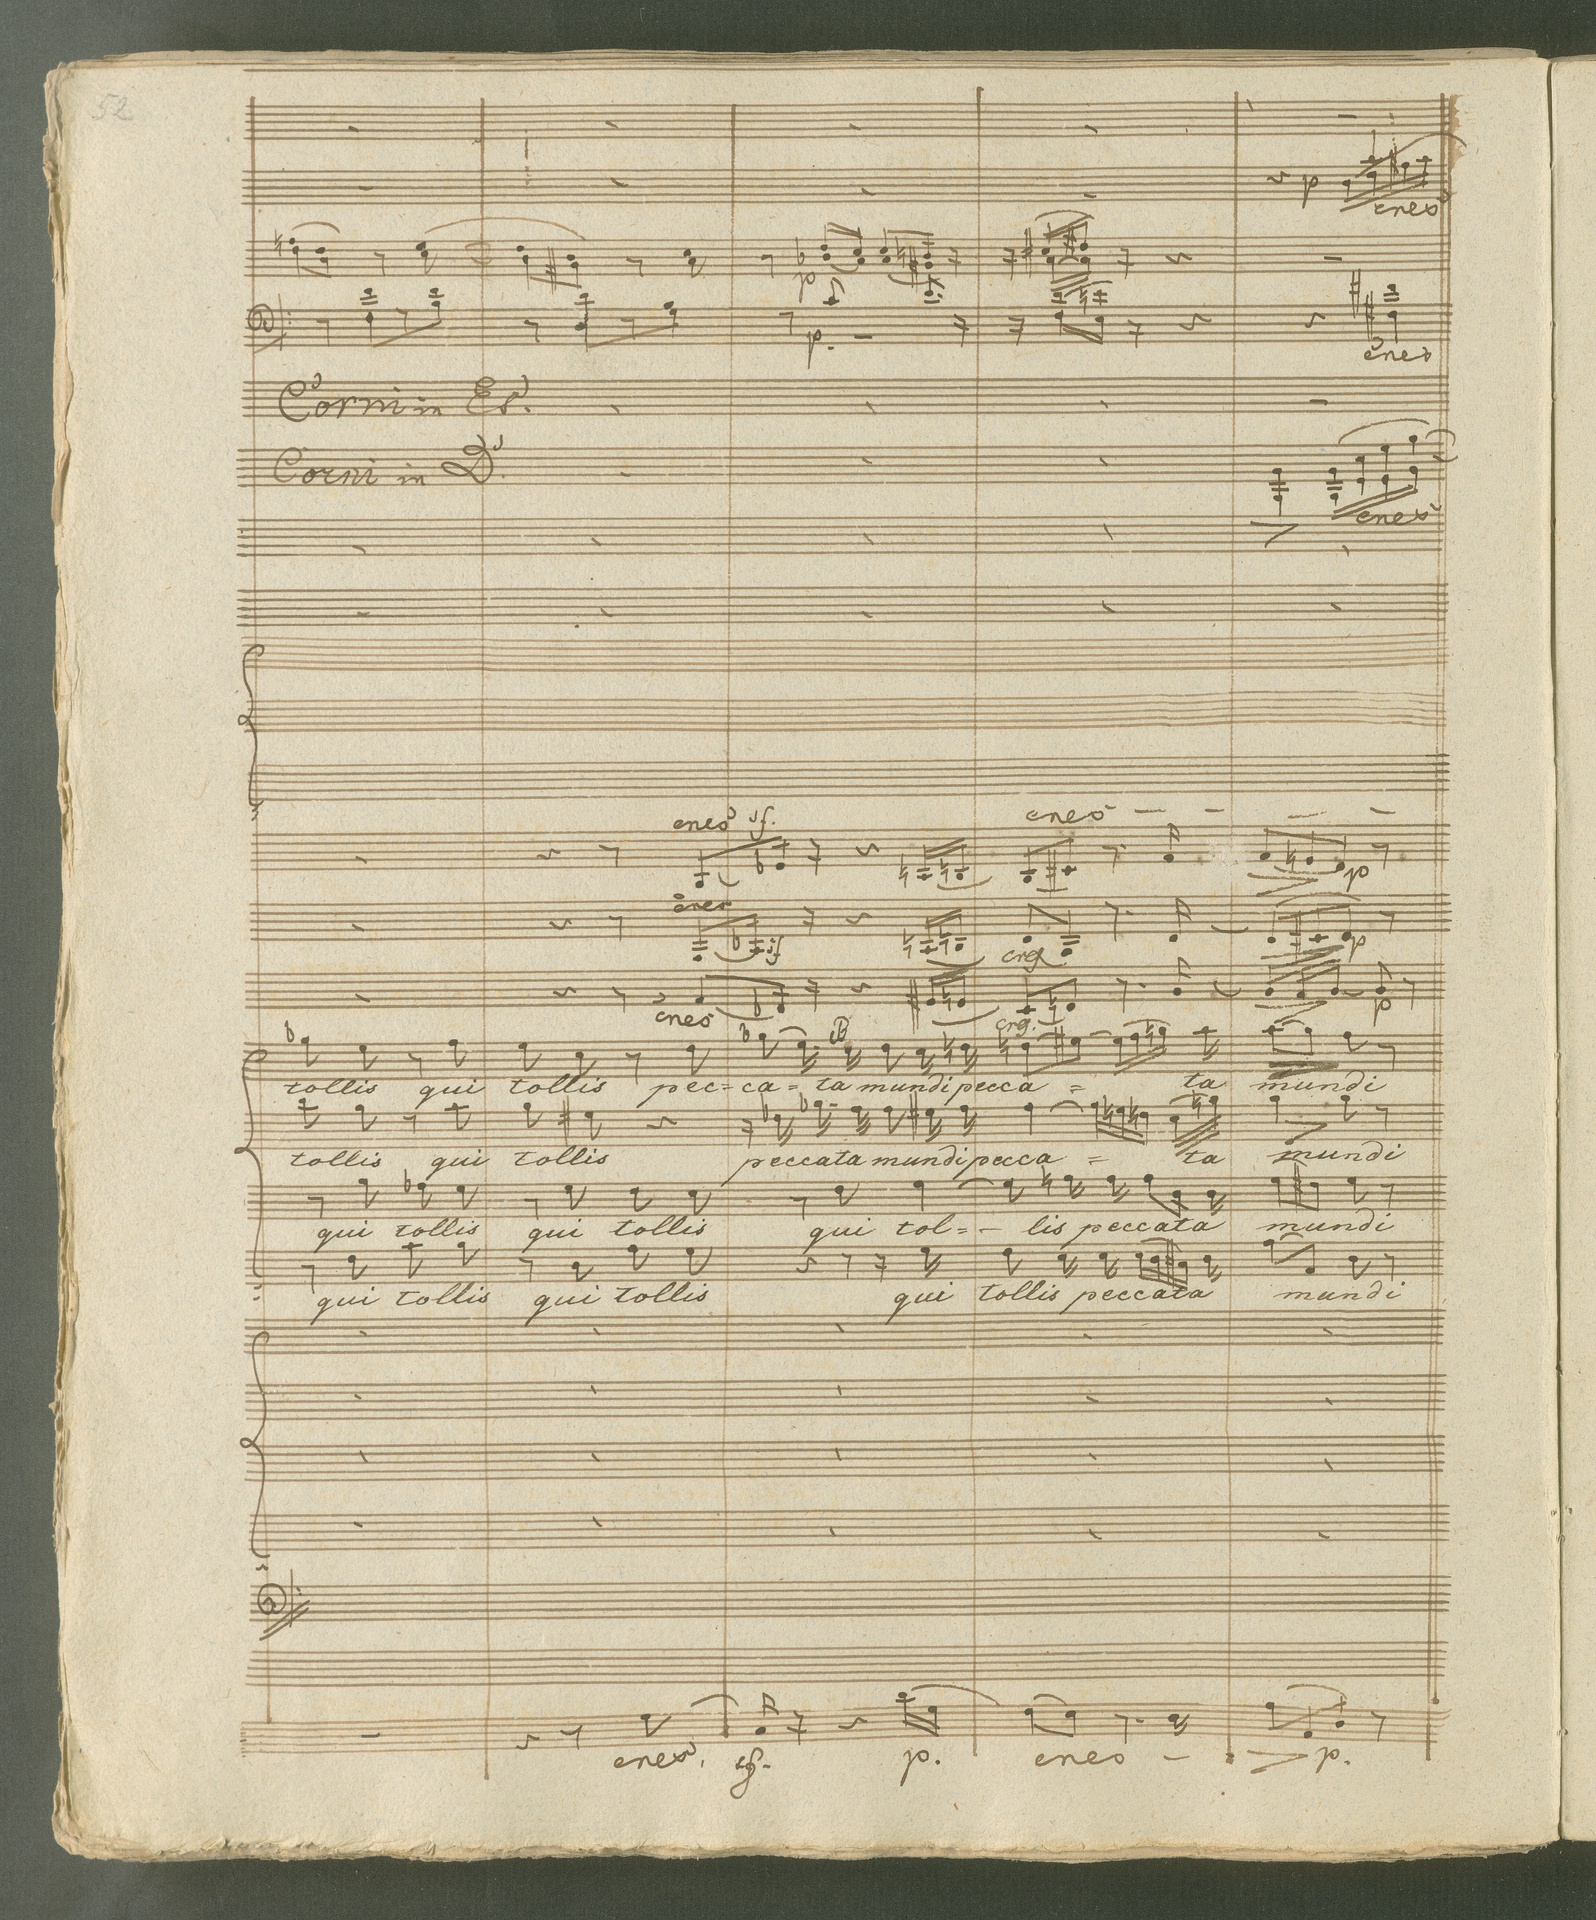 52
p
cresc
p
p. –
cresc
Corni in Es.
Corni in D.
cresc
cresc sf.
cresc – – – –
p
cresc
sf
p
cresc
p
tollis qui tollis pec=ca=ta mundi pecca = ta mundi
tollis qui tollis peccata mundi pecca = ta mundi
qui tollis qui tollis qui tol=– lis peccata mundi
qui tollis qui tollis qui tollis peccata mundi
cresc. sf. p. cresc – p.